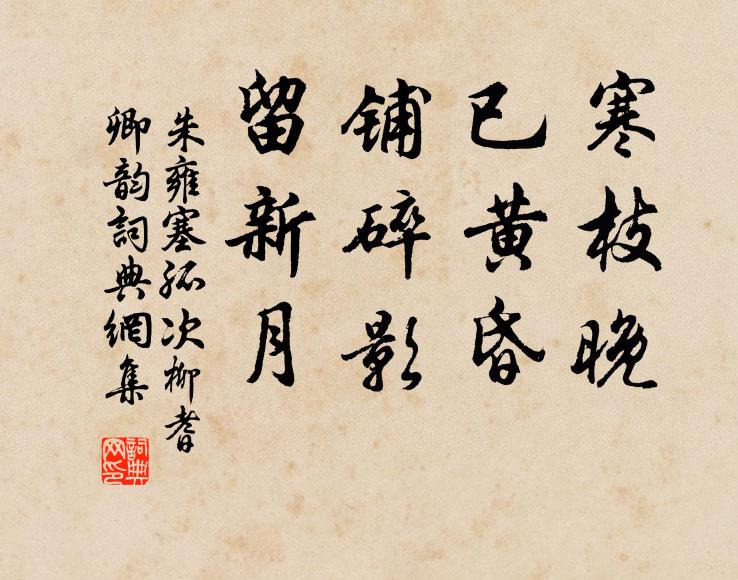 寒枝晚
已黄昏
铺碎影
留新月
朱雍塞孤次柳耆
卿韵詞典網集
詞典
网印